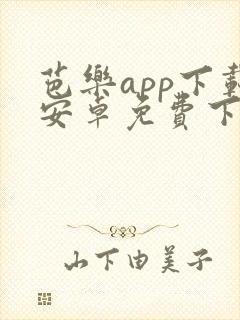 芭樂app下載
安卓免費下
山下由美子